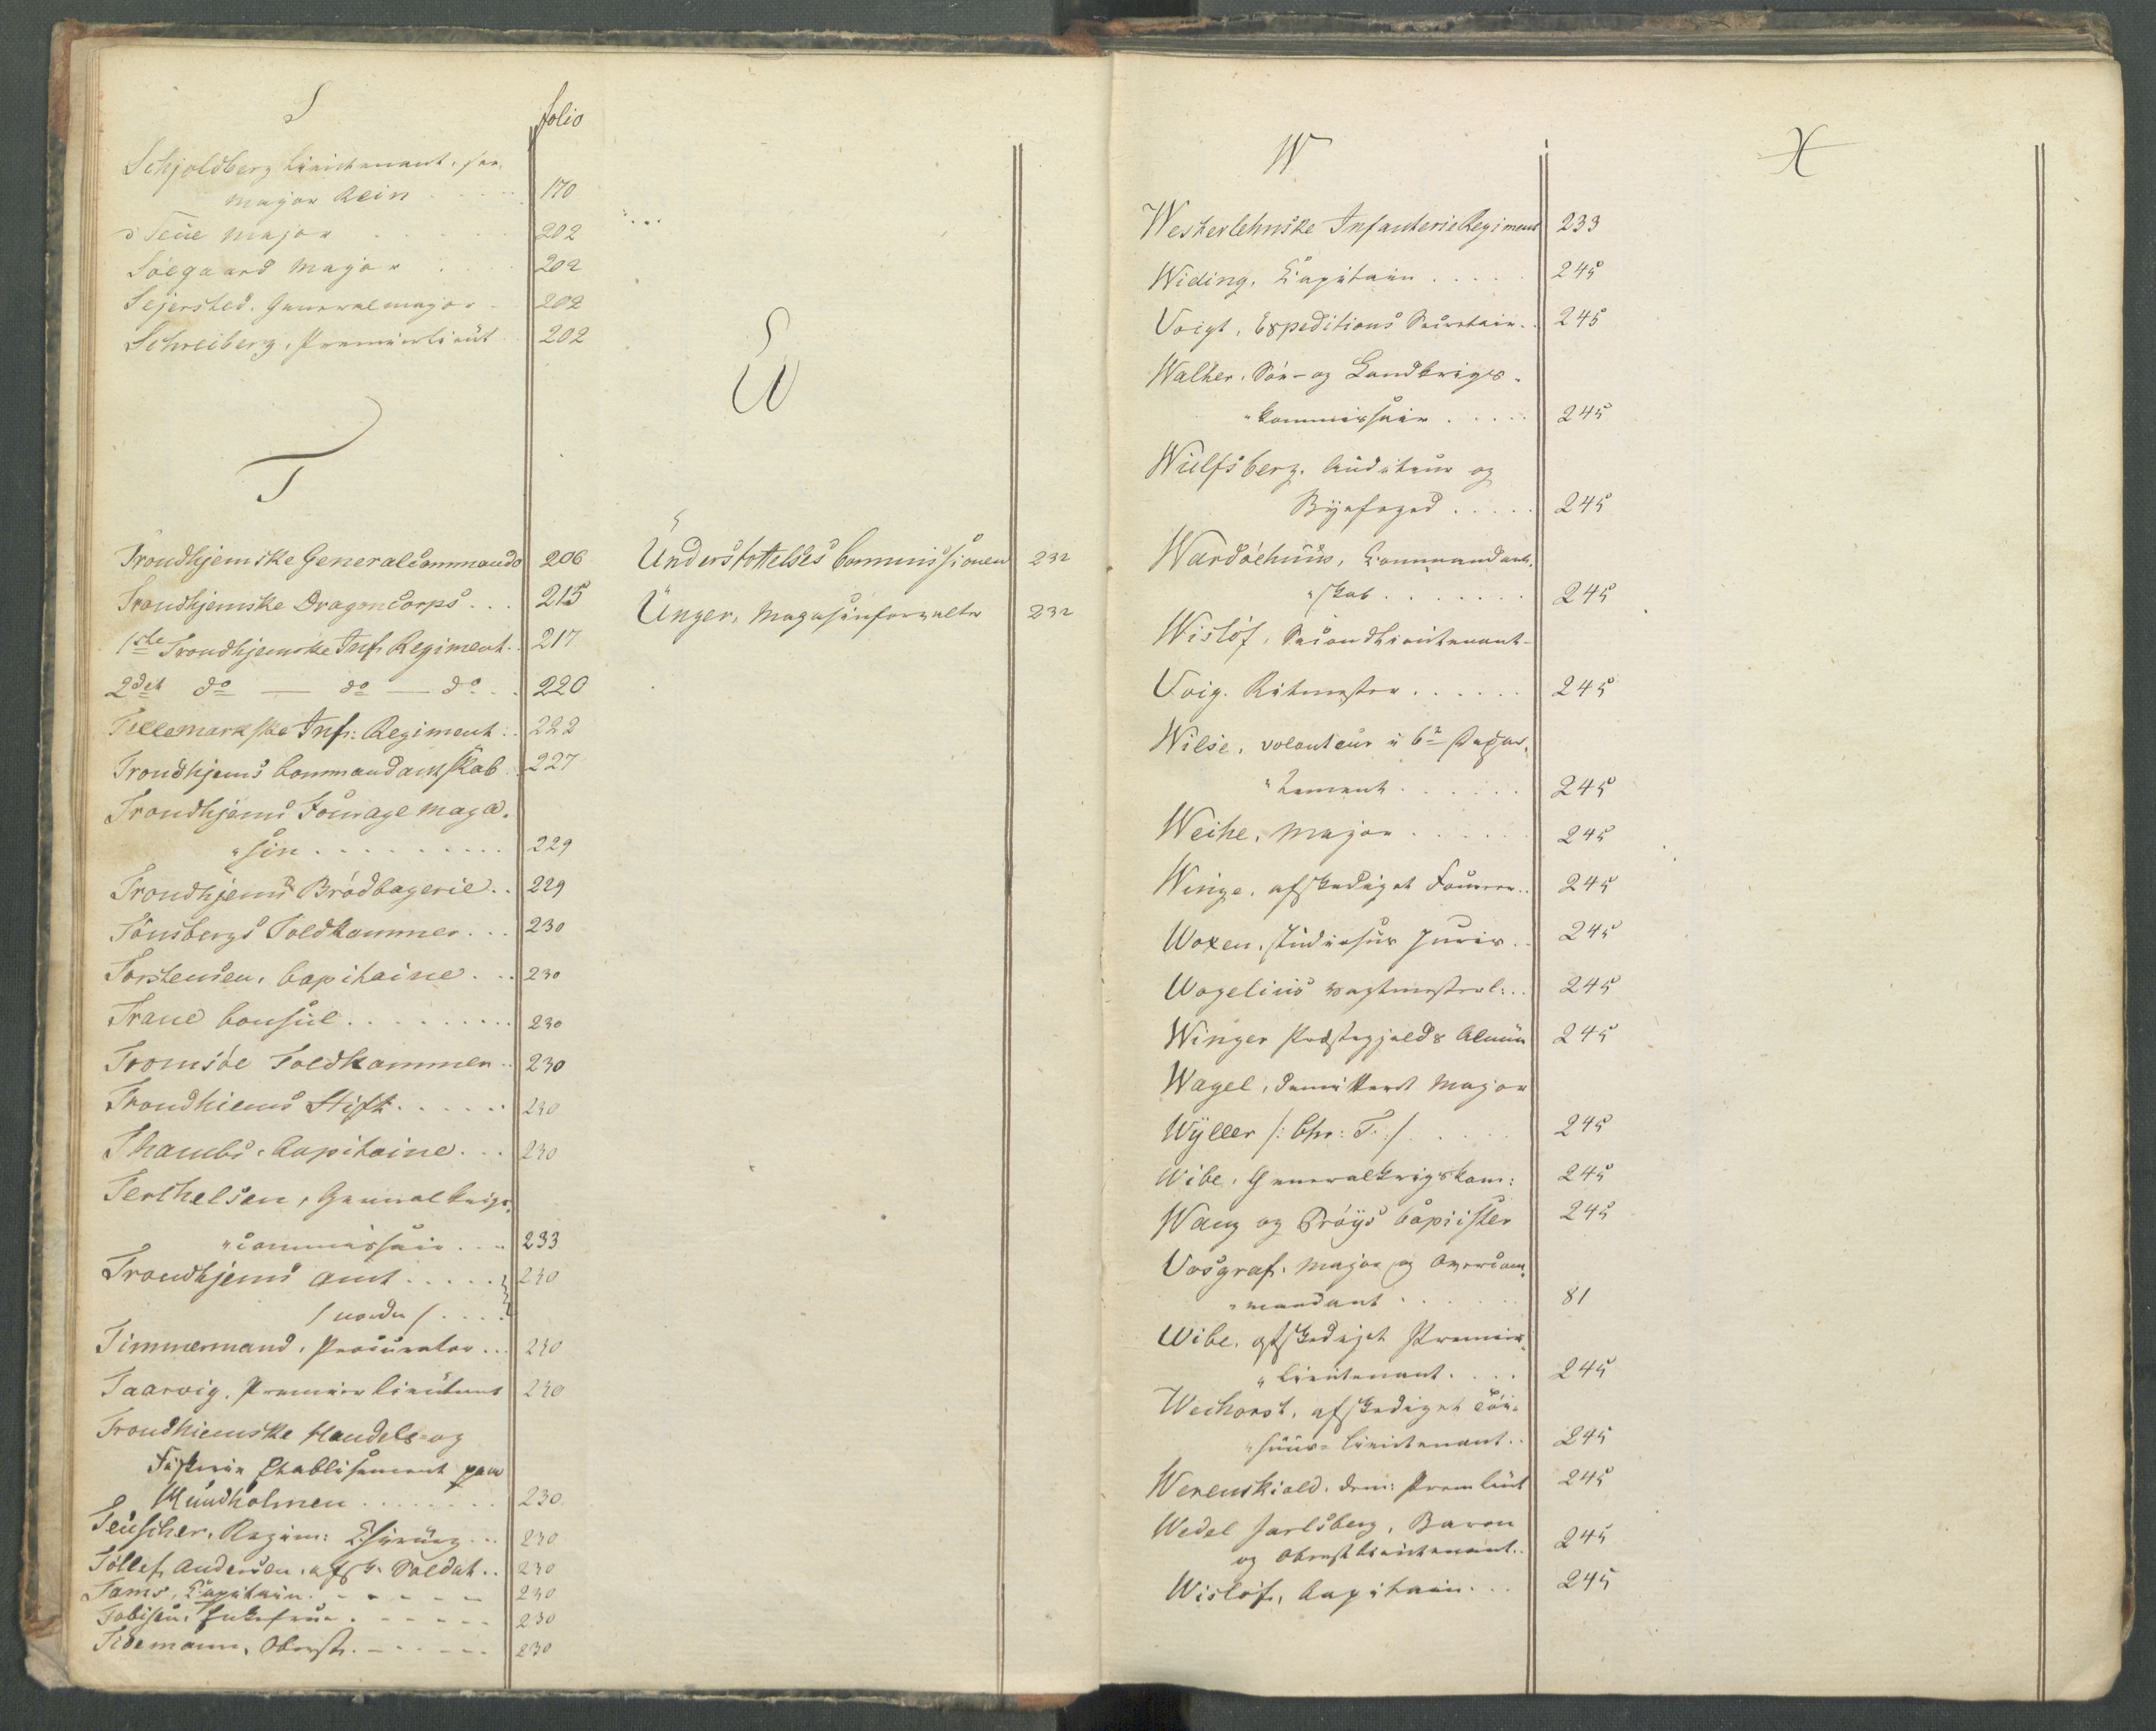 S
folio
Schjoldberg Lieutenant, see
Major Rein . . . . 170
Seüe Major . . . . . 202
Söegaard Major . . . 202
Sejersted. Generalmajor - 202
Schreiberg, Premierlieut . 202
T
Trondhjemske Generalcommando 206
Trondhjemske Dragoncorps . . . 215
1ste Trondhjemske Inf. Regiment . . 217
2det do — do — do . . 220
Tellemarkske Inf: Regiment . . 222
Trondhjems Commandantskab . 227
Trondhjems Fourage Maga-
"sin . . . . . . . . . 229
Trondhjems Brödbagerie . . 229
Tönsbergs Toldkammer . . . 230
Torstensen, Capitaine . . . 230
Trane Consul . . . . . . . . . 230
Tromsöe Toldkammer . . 230
Trondhiems Stift . . . . . . 230
Thambs. Capitaine . . . 230
Terthelsen, General krigs-
"commissair . . . . 233
Trondhjems Amt . . . . . 230
/ nordre / . . . .
Timmermand, Procurator . . . 230
Taarvig. Premier Lieutenant 230
Trondhiemske Handels- og
Fiskerie Etablisement paa
Mundholmen . . . . . . . 230
Teuscher, Regim: Chirurg . . . 230
Tollef Andersen. afsk. Soldat . . 230
Tams, Capitain . - - - - - 230
Tobisen, Enkefrue . - - - - - 230
Tidemann, Oberst . - - - - - 230
U
Understöttelses Commissionen 232
Unger, Magasinforvalter 232
W
Westerlehnske InfanterieRegiment 233
Widing, Capitain . . . . . 245
Voigt, Expeditions Secretair . . 245
Walker, Söe- og Landkrigs-
"kommissair . . . . . 245
Wulfsberg. Auditeur og
Byefoged . . . . . 245
Wardöehuus, Commandant-
"skab . . . . . . . 245
Wislöf, Secondlieutenant -
Voig. Ritmester . . . . . . 245
Wilse, volonteur i 6te Depar-
"tement . . . . . . 245
Weihe, Major . . . . . 245
Winge, afskediget Fourer . . 245
Woxen, studiosus juris . . 245
Wogelius vagtmester . . . 245
Winger Præstegjelds Almue 245
Wagel, demitteret Major
Wÿller /: Chr: T: / . . . . . 245
Wibe, Generalkrigskom: 245
Wang og Pröÿs Copiister 245
Vosgraf. Major og Overcom-
"mandant . . . . . . 81
Wibe, afskediget Premier-
"Lieutenant . . . . 245
Weihorst, afskediget
"Lieutenant . . 245
Werenskiold. dem: Premlieut 245
Wedel Jarlsberg, Baron
og Oberstlieutenant . . 245
Wislöf, Capitain . . . 245
X